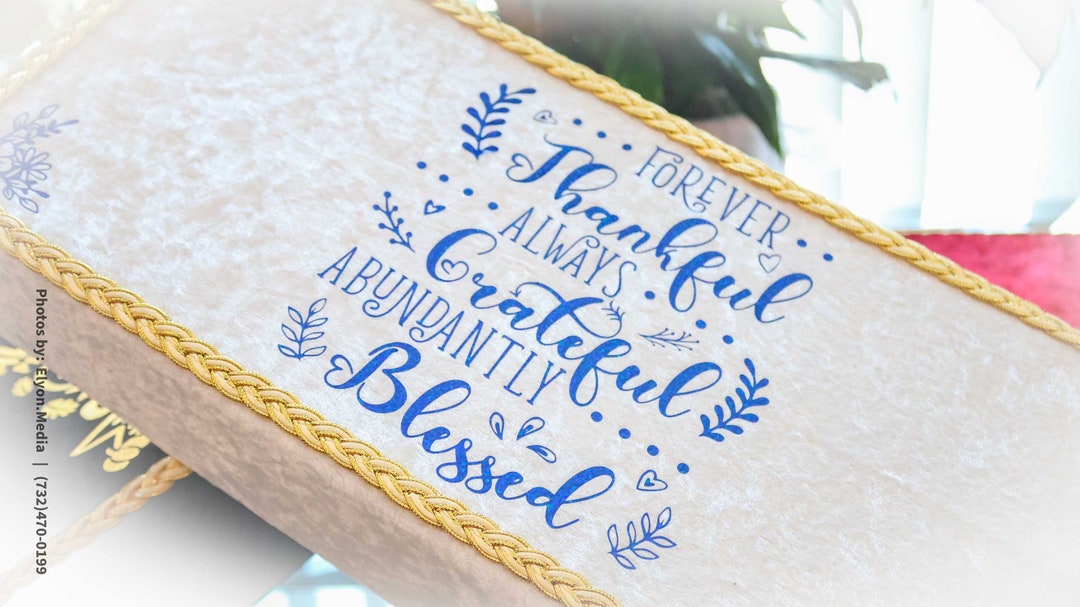 FOREVER
Thankful
ALWAYS
Grateful
ABUNDANTLY
Blessed
Photos by: Elyon.Media | (732)470-0199